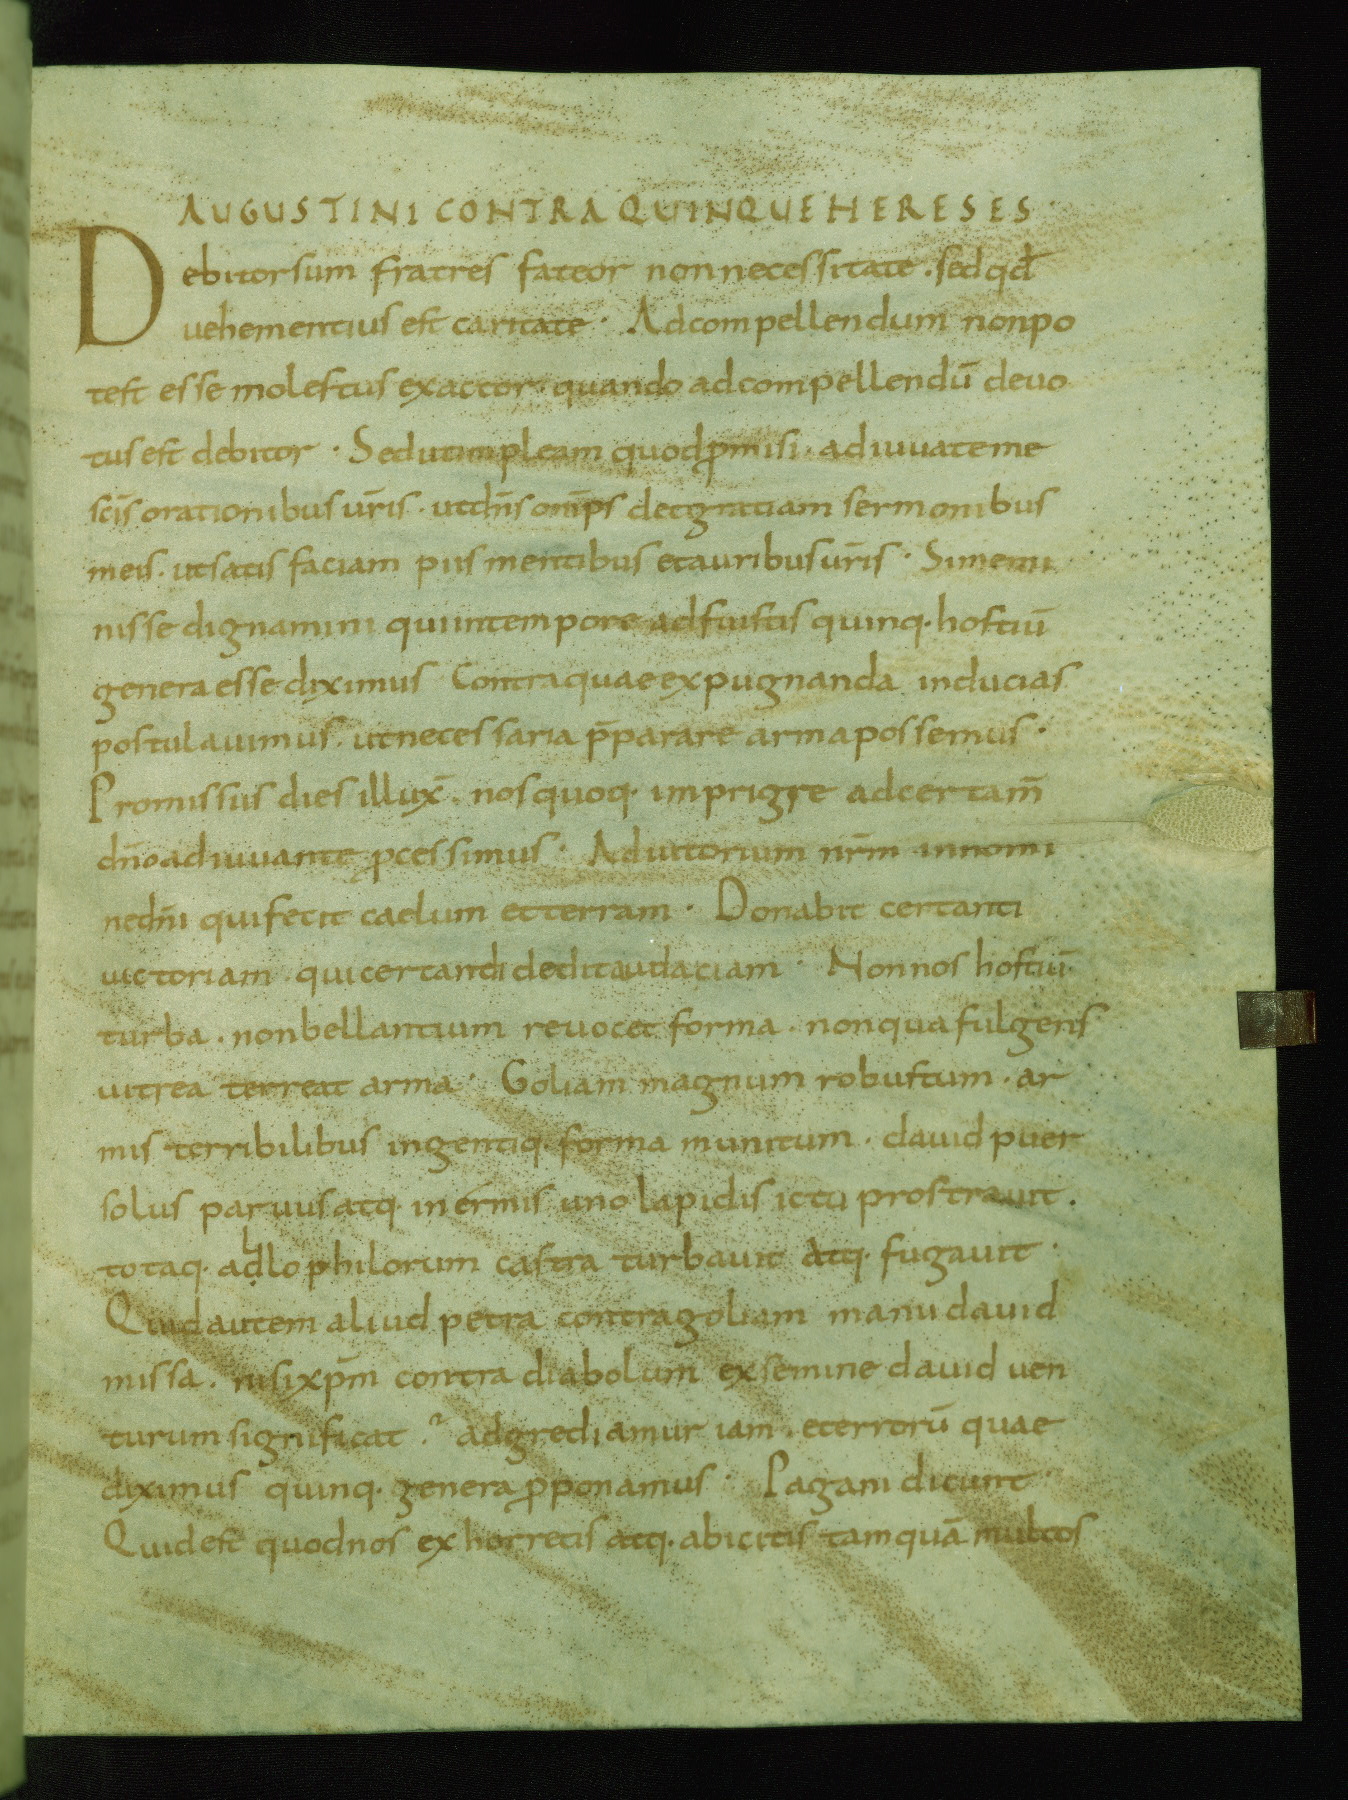 AUGUSTINI CONTRA QUINQUE HERESES
Debitor sum fratres fateor non necessitate · sed qđ
uehementius est caritate · Ad compellendum non po
test esse molestus exactor · quando ad compellendū deuo
tus est debitor · Sed ut impleam quod ꝓmisi · adiuuate me
sc̄is orationibus ur̄is · ut dn̄s om̄ps det gratiam sermonibus
meis · ut satis faciam piis mentibus et auribus ur̄is · Si memi
nisse dignamini qui in tempore adfuistis quinq· hostiū
genera esse diximus Contra quae expugnanda inducias
postulauimus · ut necessaria p̄parare arma possemus ·
Promissus dies illux̄ · nos quoq· impigre ad certam̄
dn̄o adiuuante ꝓcessimus · Adiutorium nr̄m in nomi
ne dn̄i qui fecit caelum et terram · Donabit certanti
uictoriam · qui certandi dedit audaciam · Non nos hostiū
turba · non bellantium reuocet forma · non qua fulgens
uitrea terreat arma · Goliam magnum robustum · ar
mis terribilibus ingentiq· forma munitum · dauid puer
solus paruus atq· inermis uno lapidis ictu prostrauit ·
totaq· adlophilorum castra turbauit atq· fugauit ·
Quid autem aliud petra contra goliam manu dauid
missa · nisi xp̄m contra diabolum ex semine dauid uen
turum significat · adgrediamur iam · et errorū quae
diximus quinq· genera ꝓponamus · Pagani dicunt ·
Quid est quod nos exhorretis atq· abicitis tamquā multos